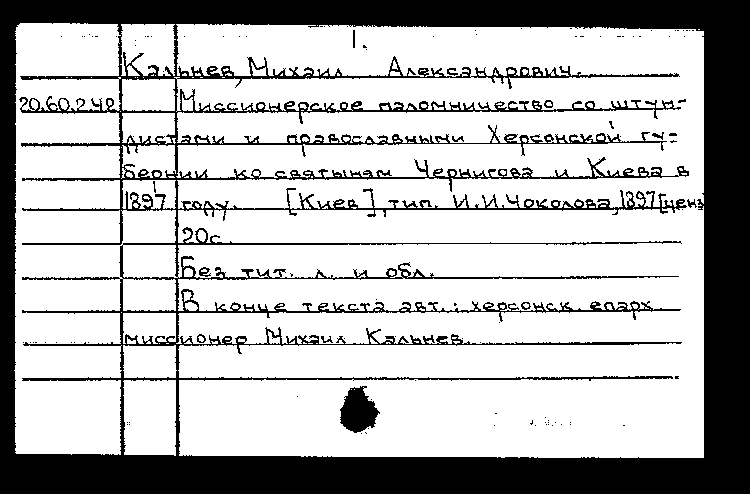 1.
Кальнев, Михаил Александрович.
20.60.2.42 Миссионерское паломничество со штун-
дистами и православными Херсонской гу-
бернии ко святыням Чернигова и Киева в
1897 году. [Киев], тип. И.И.Чоколова, 1897 [ценз
20с.
Без тит. л. и обл.
В конце текста авт.: херсонск. епарх.
миссионер Михаил Кальнев.